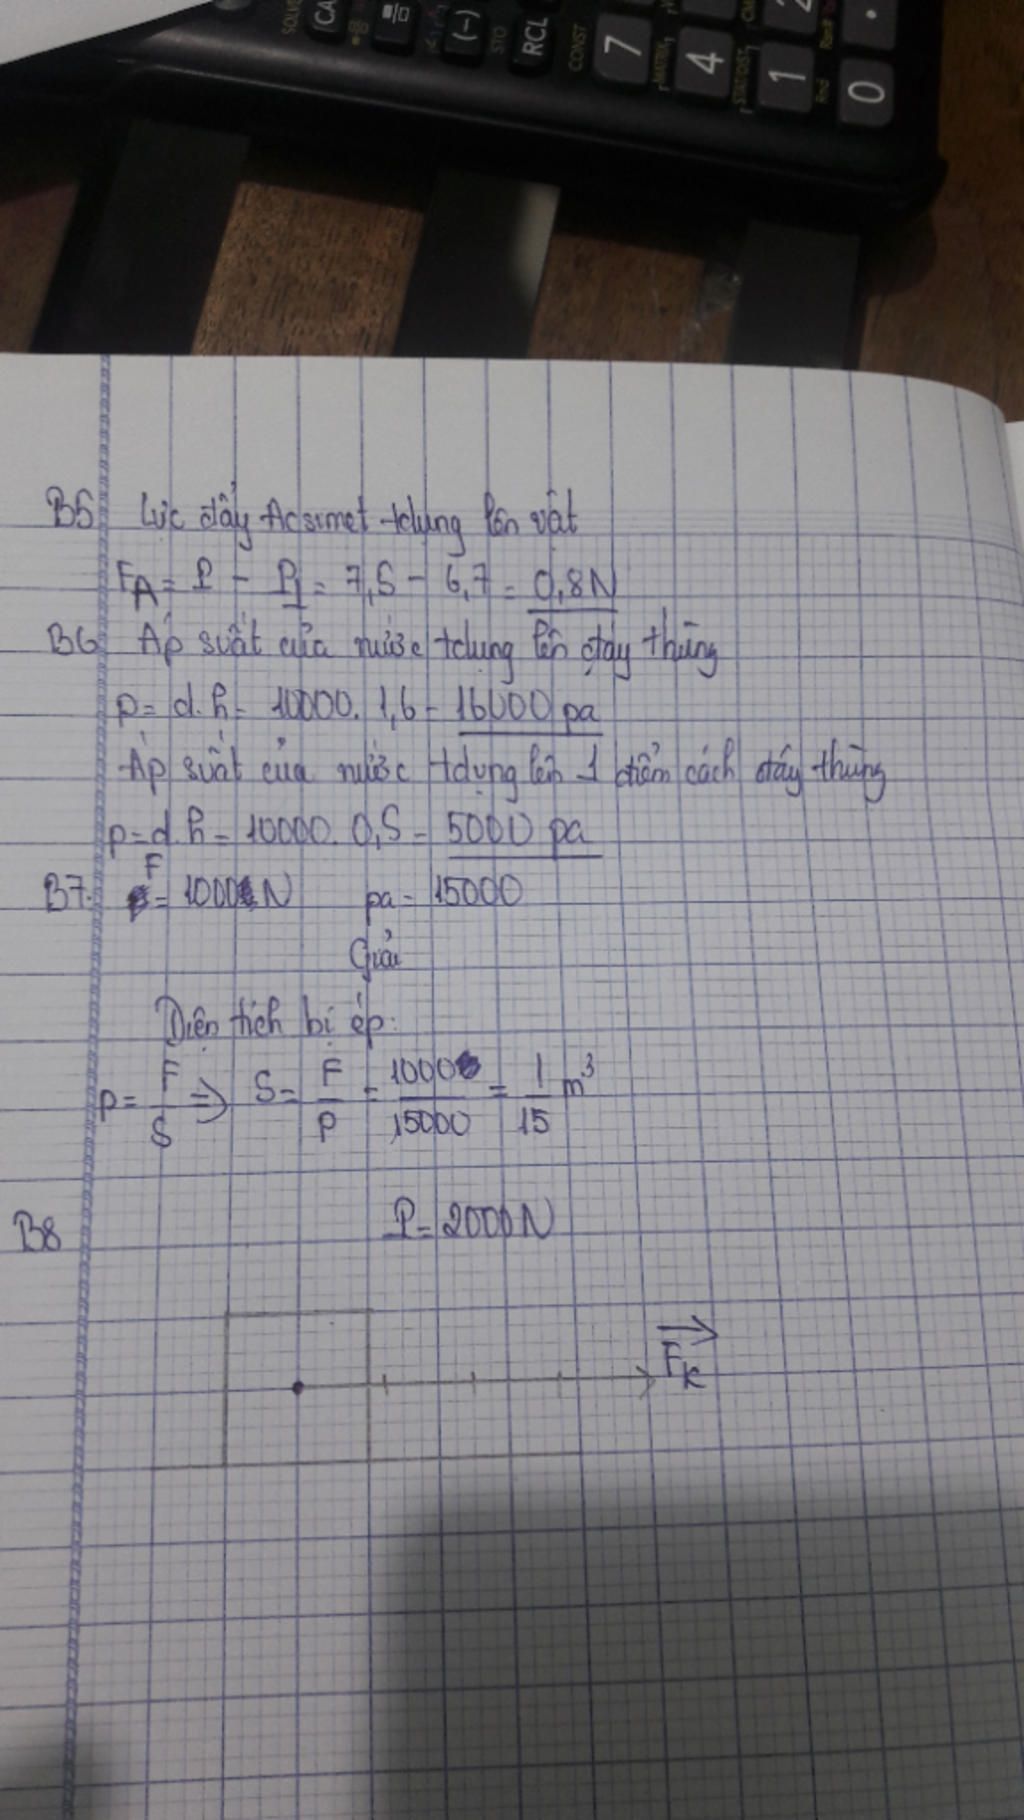 SOLVE
(CA
(-)
STO
RCL
CONST
7
MATRIX
4
STAT/DIST
1
Rnd
0
Ran#
.
B5 Lực đẩy Acsimet tdụng lên vật
FA = P - P1 = 7,5 - 6,7 = 0,8N
B6 Áp suất của nước tdụng lên đáy thùng
p = d.h = 10000. 1,6 = 16000 pa
Áp suất của nước tdụng lên 1 điểm cách đáy thùng
p = d.h = 10000. 0,5 = 5000 pa
B7. F = 1000N pa = 15000
Giải
Diện tích bị ép:
p = F/S => S = F/P = 1000/15000 = 1/15 m³
B8 P = 2000N
Fk